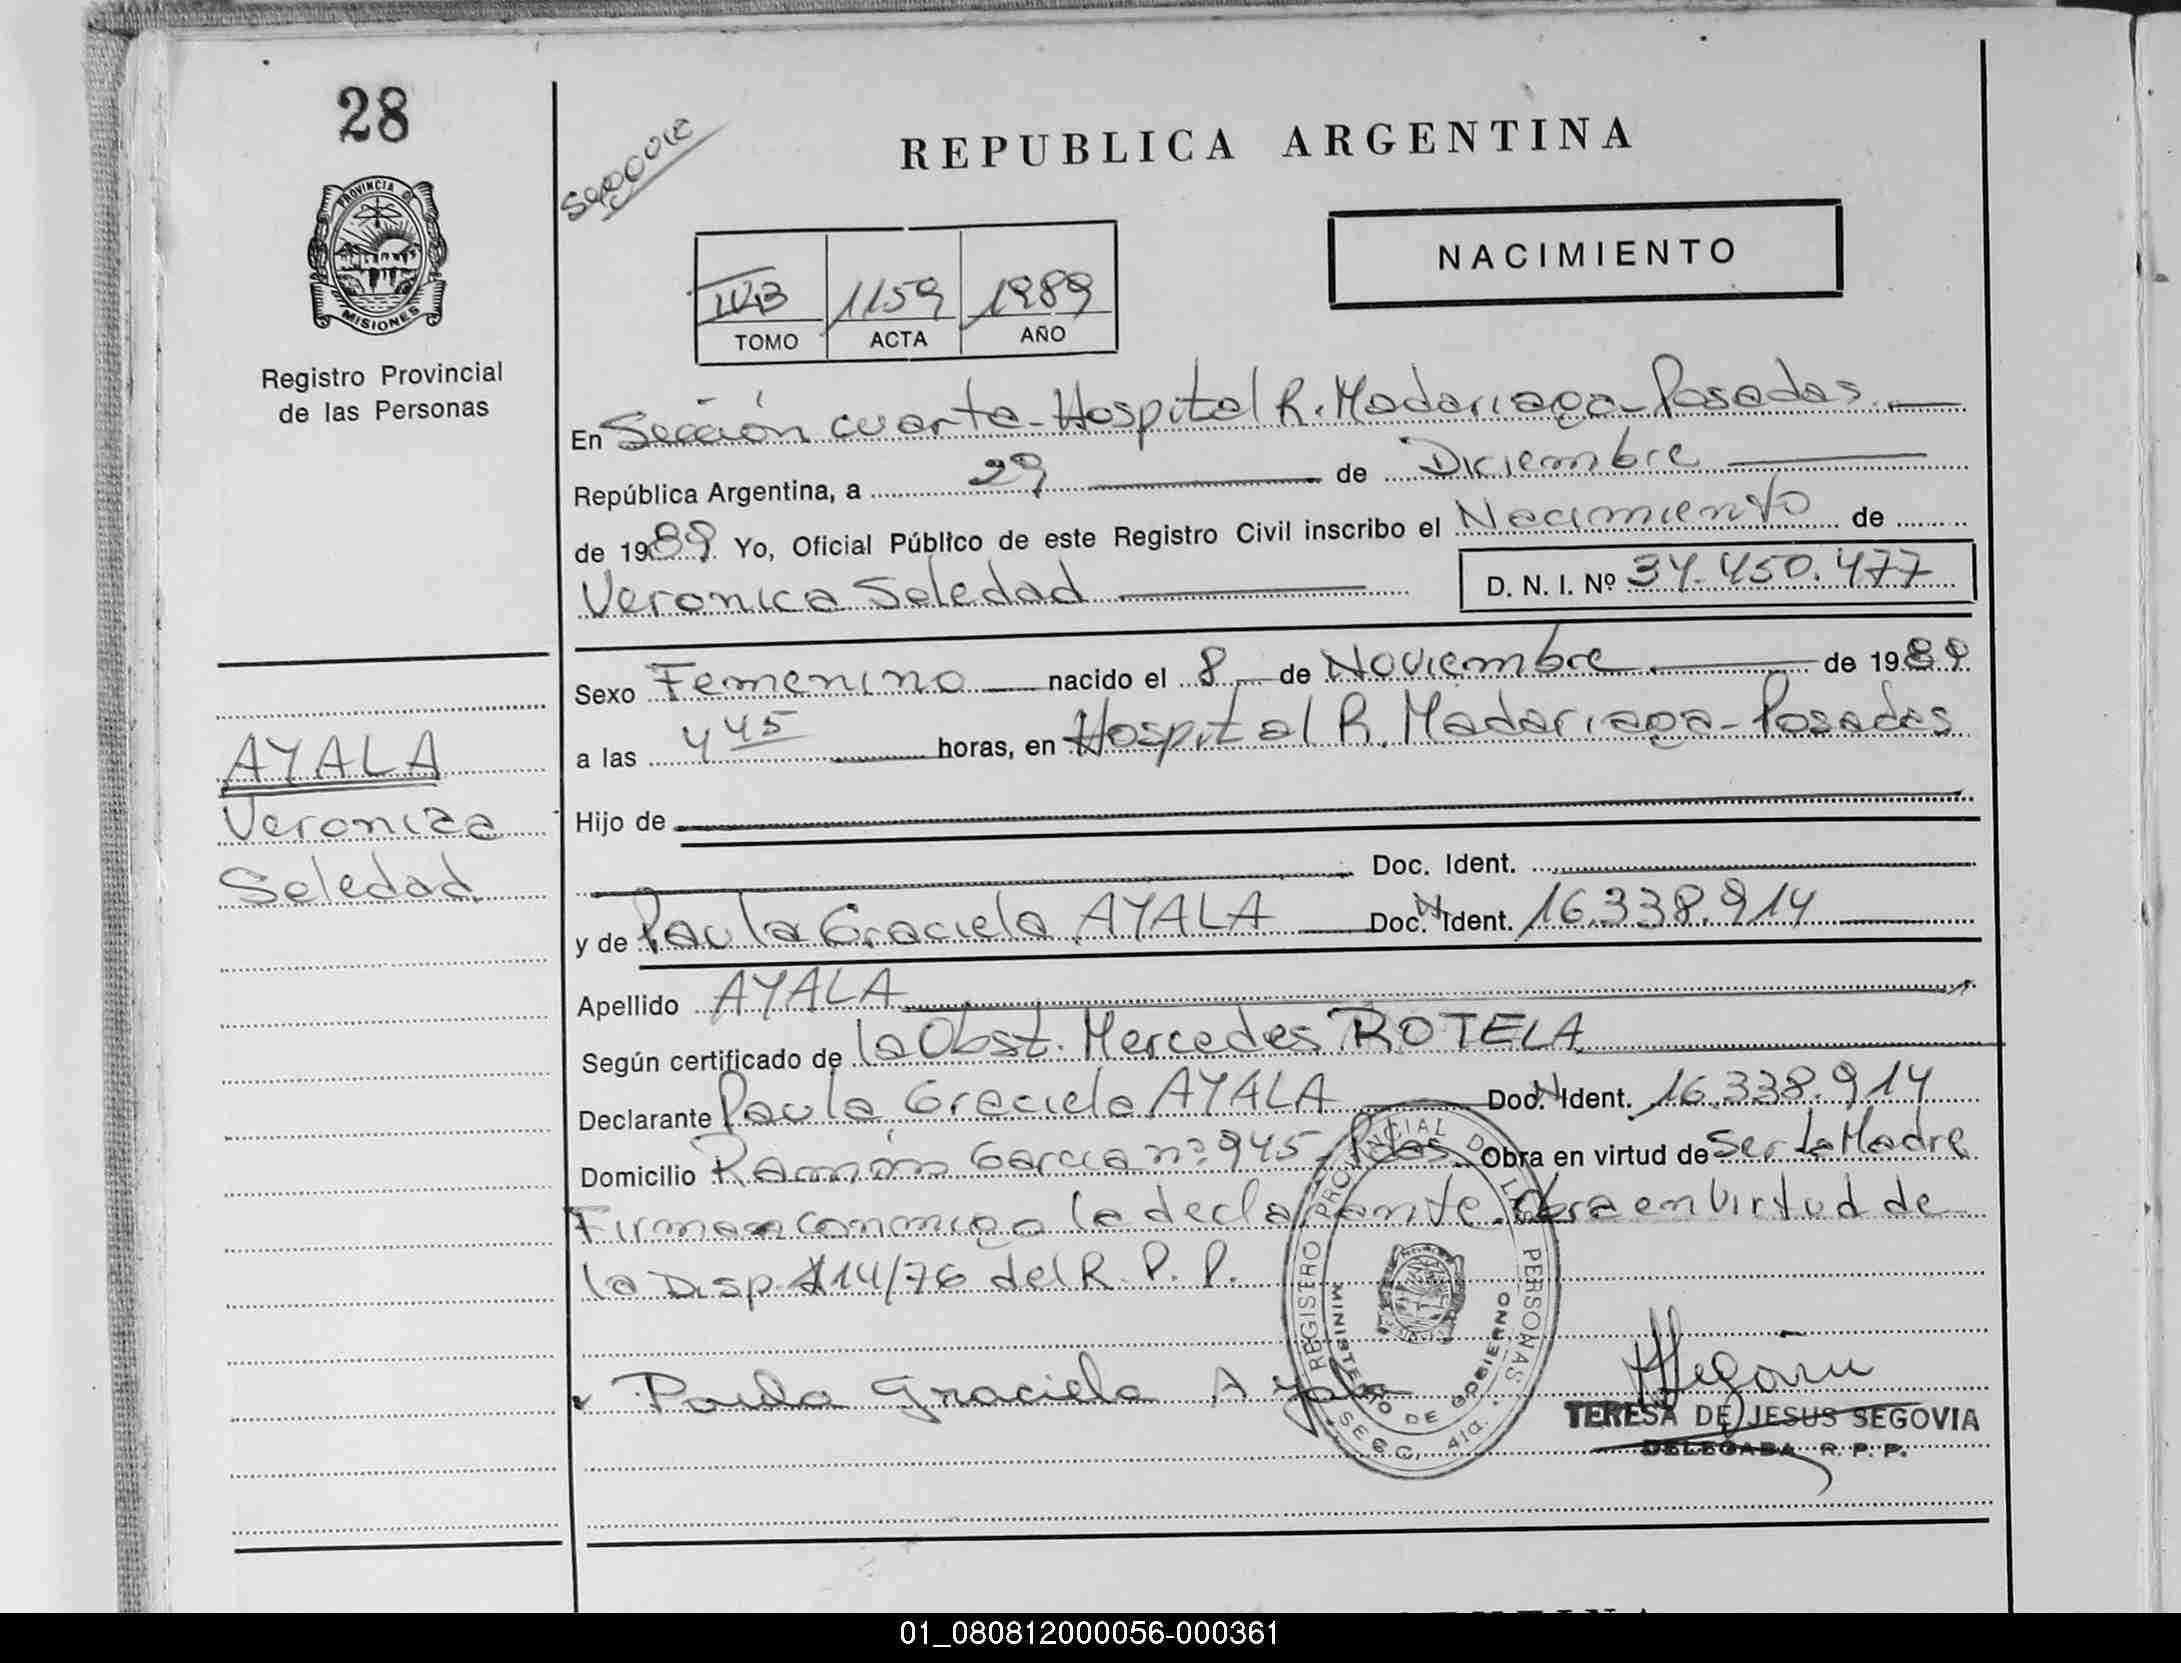 28
PROVINCIA DE
MISIONES
Registro Provincial
de las Personas
REPUBLICA ARGENTINA
NACIMIENTO
IVB 1159 1989
TOMO ACTA AÑO
En Sección cuarta - Hospital R. Madariaga - Posadas
República Argentina, a 29 de Diciembre
de 1989 Yo, Oficial Público de este Registro Civil inscribo el Nacimiento de
Veronica Soledad D. N. I. Nº 34.450.477
Sexo Femenino nacido el 8 de Noviembre de 1989
a las 4 45 horas, en Hospital R. Madariaga - Posadas
AYALA
Veronica
Soledad
Hijo de
Doc. Ident.
y de Paula Graciela AYALA Doc. N Ident. 16.338.914
Apellido AYALA
Según certificado de la Obst. Mercedes ROTELA
Declarante Paula Graciela AYALA Doc. N Ident. 16.338.914
Domicilio Ramón Garcia nº 945 - Pdas Obra en virtud de ser la Madre
Firma conmigo la declarante. Obra en Virtud de
la Disp. 114/76 del R. P. P.
REGISTRO PROVINCIAL DE LAS PERSONAS
MINISTERIO DE GOBIERNO
SECC. 4ta.
Paula Graciela Ayala
TERESA DE JESUS SEGOVIA
DELEGADA R. P. P.
01_080812000056-000361